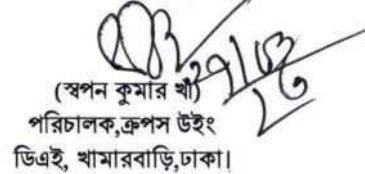 (স্বপন কুমার খাঁ)
পরিচালক,ক্রপস উইং
ডিএই, খামারবাড়ি,ঢাকা।